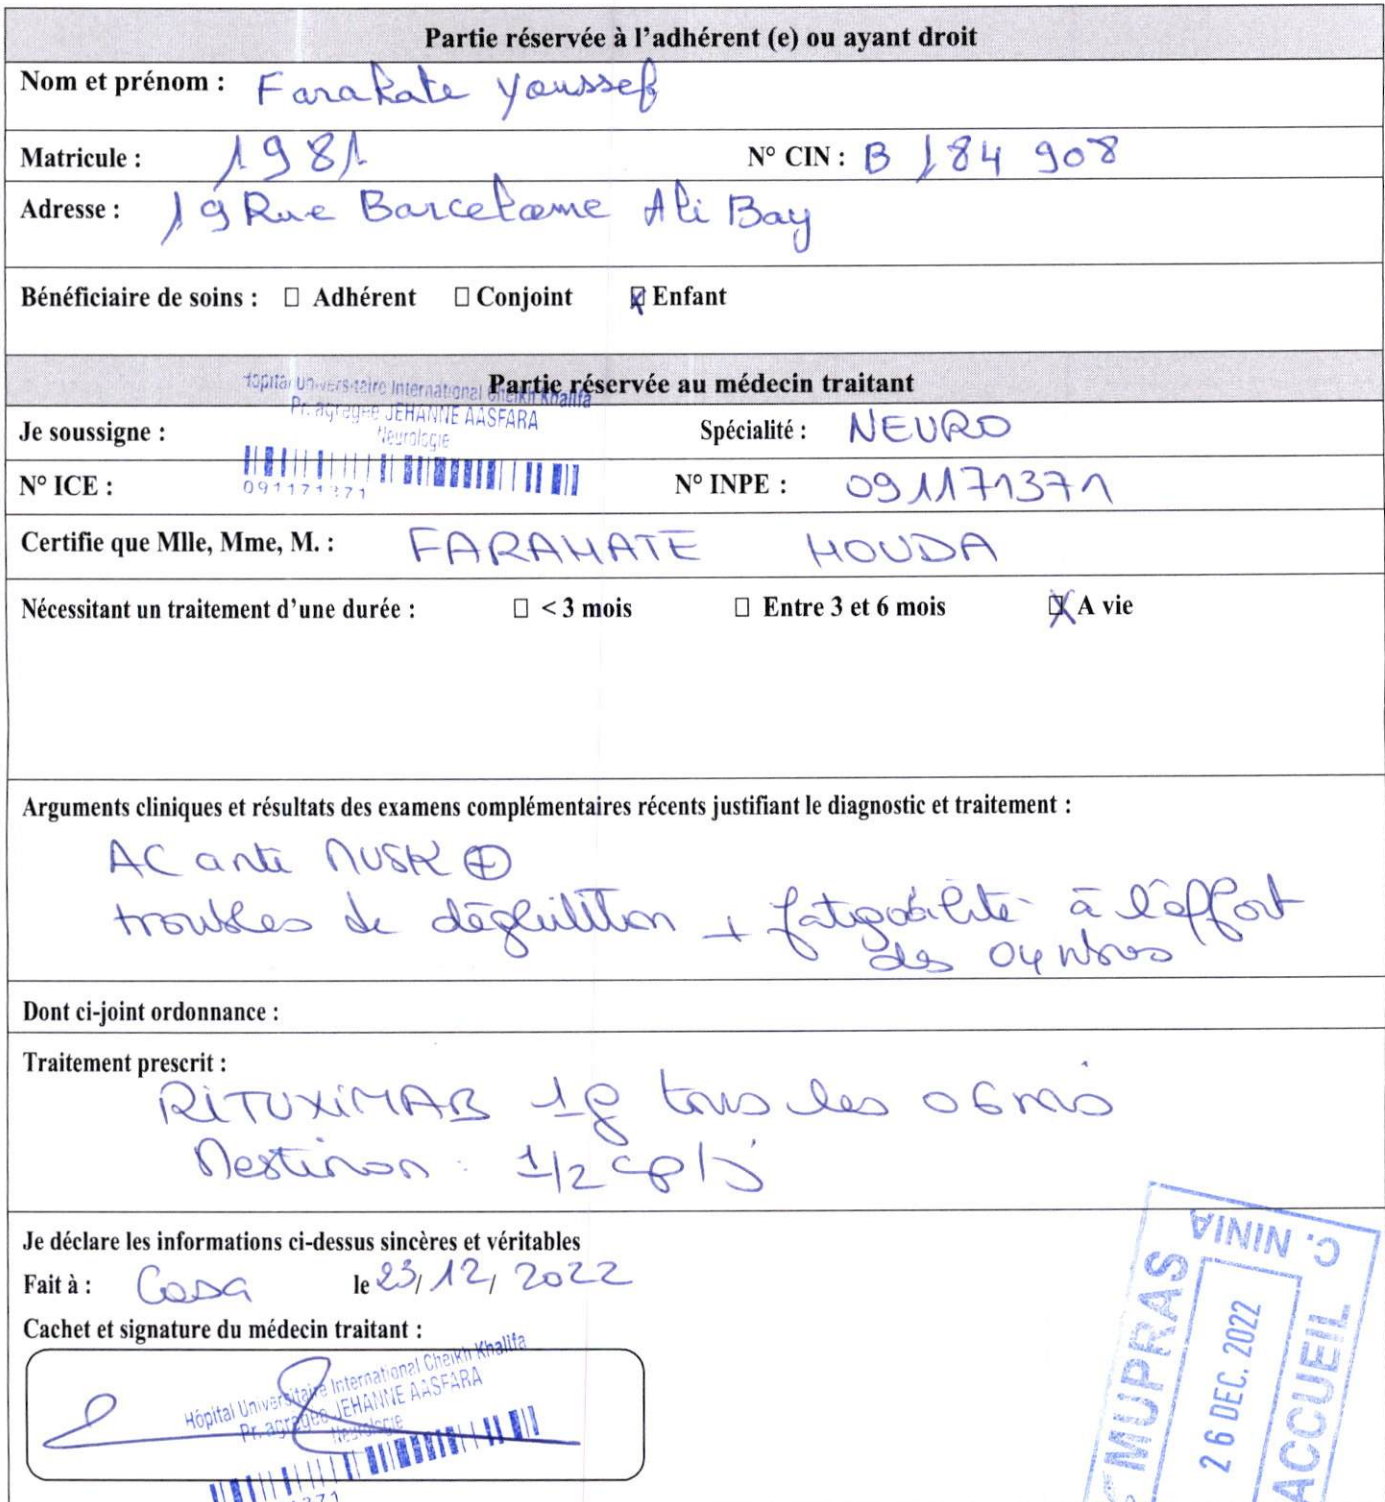 Partie réservée à l'adhérent (e) ou ayant droit
Nom et prénom : Farahate Youssef
Matricule : 1981 N° CIN : B 184 908
Adresse : 19 Rue Barcelone Ali Bay
Bénéficiaire de soins : □ Adhérent □ Conjoint ☒ Enfant
Hôpital Universitaire International Cheikh Khalifa
Partie réservée au médecin traitant
Pr. agrégée JEHANNE AASFARA
Neurologie
Je soussigne : Spécialité : NEURO
N° ICE : 091171371 N° INPE : 091171371
Certifie que Mlle, Mme, M. : FARAHATE HOUDA
Nécessitant un traitement d'une durée : □ < 3 mois □ Entre 3 et 6 mois ☒ A vie
Arguments cliniques et résultats des examens complémentaires récents justifiant le diagnostic et traitement :
AC anti MUSK ⊕
troubles de déglutition + fatigabilité à l'effort
des 04 mbres
Dont ci-joint ordonnance :
Traitement prescrit :
RITUXIMAB 1g tous les 06 mois
Mestinon : 1/2 cp/j
Je déclare les informations ci-dessus sincères et véritables
Fait à : Casa le 23/12/2022
Cachet et signature du médecin traitant :
Hôpital Universitaire International Cheikh Khalifa
Pr. agrégée JEHANNE AASFARA
Neurologie
C. NINIA
MUPRAS
26 DEC. 2022
ACCUEIL